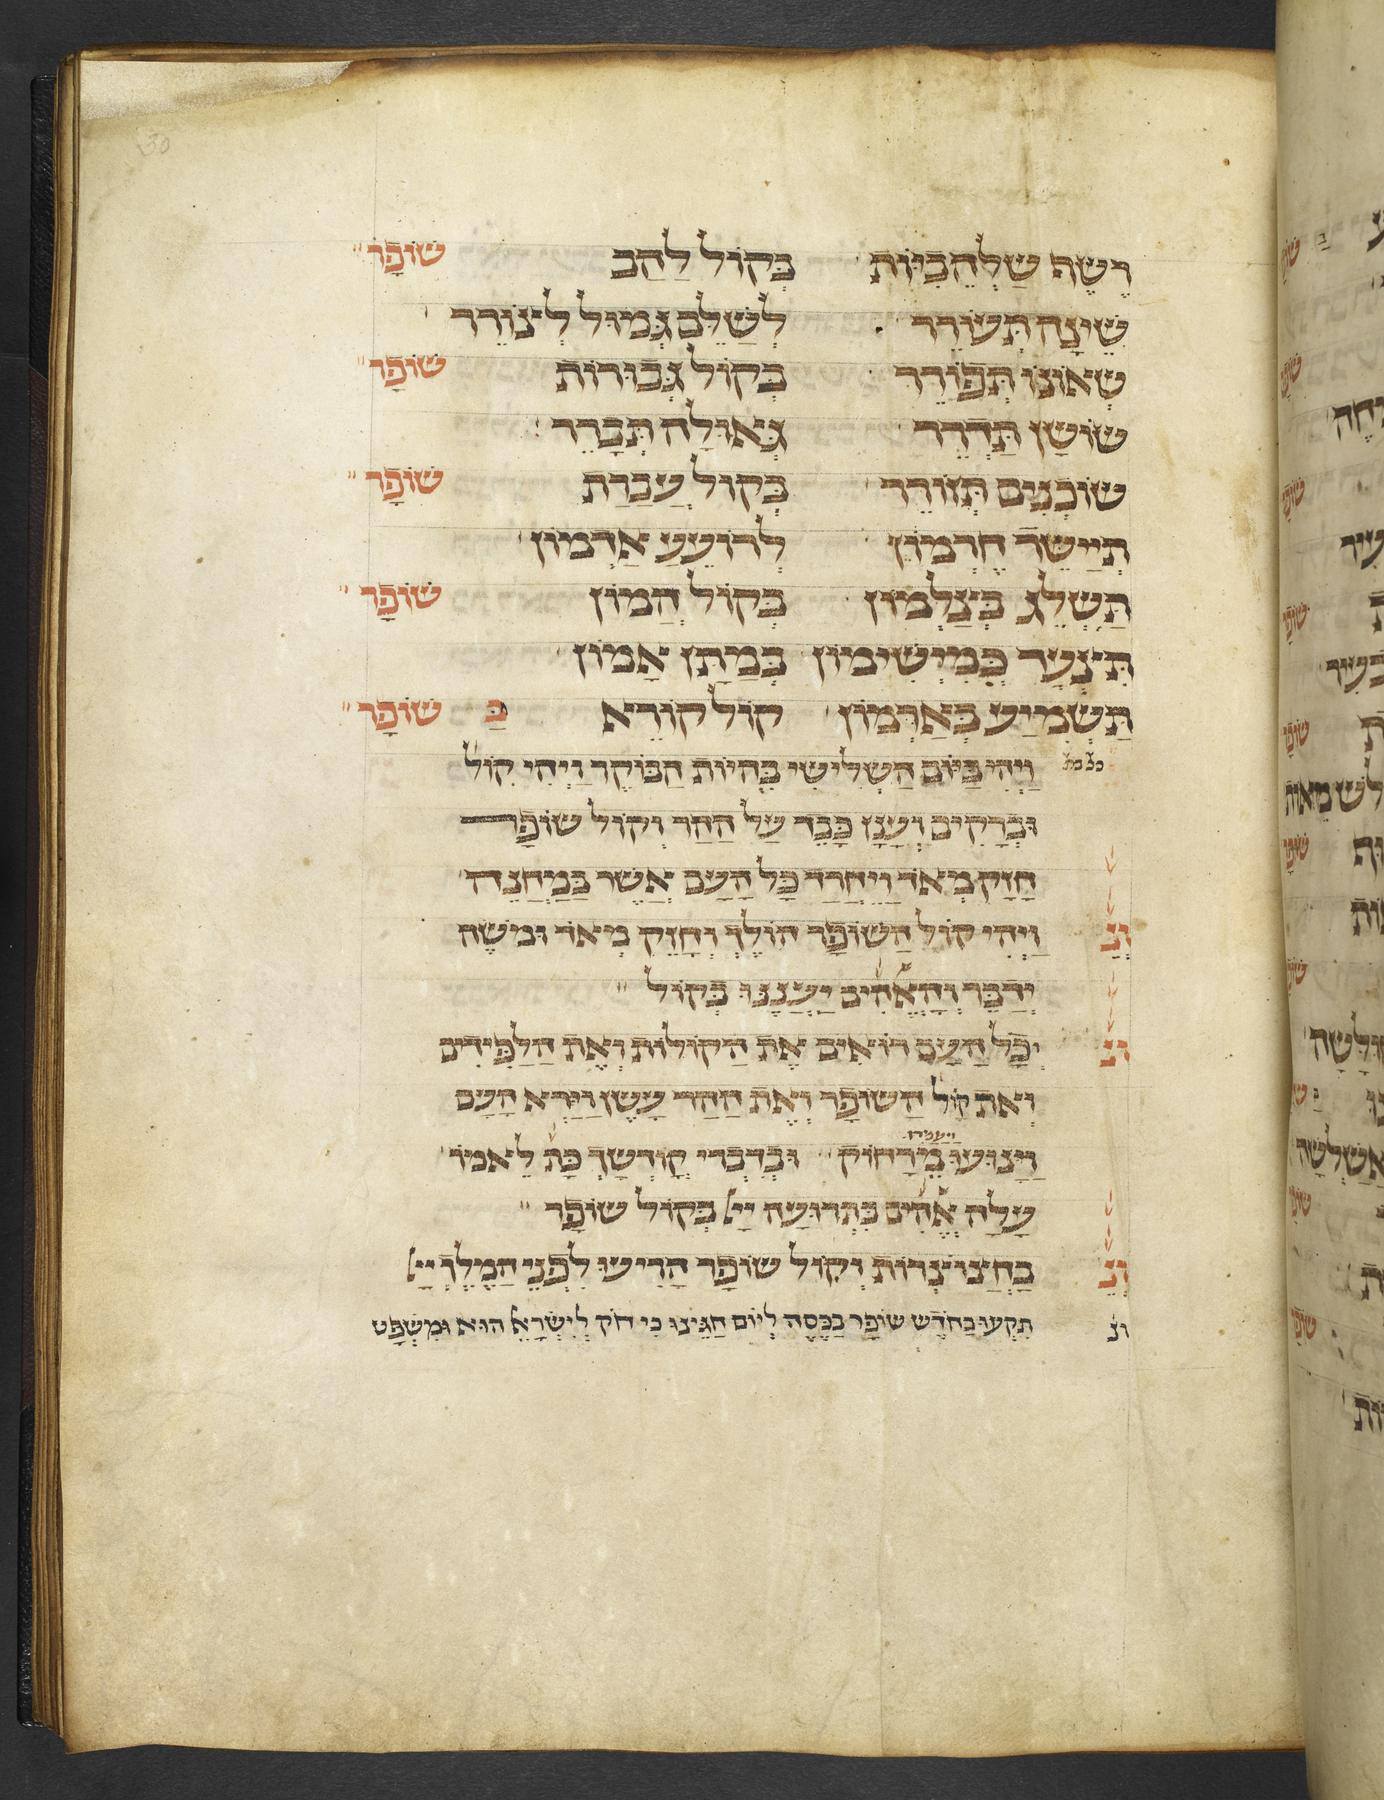 רֶשֶׁת שַׁלְהֵבִיוֹת בְּקוֹל לַהַב שׁוֹפָר
שֵׁינָה תְּעוֹרֵר לְשַׁלֵּם גְּמוּל לְצוֹרֵר
שְׁאוֹנוֹ תְּפוֹרֵר בְּקוֹל גְּבוּרוֹת שׁוֹפָר
שׁוֹשָׁן תְּדַרֵר גְּאוּלָה תְּבָרֵר
שׁוֹכְנִים תְּזוֹרֵר בְּקוֹל עֶבְרַת שׁוֹפָר
תְּיַשֵּׁר חֶרְמוֹן לְרוֹעֵעַ אַרְמוֹן
תַּשְׁלֵג בְּצַלְמוֹן בְּקוֹל הָמוֹן שׁוֹפָר
תִּצְעַד בְּמִישִׁימוֹן כְּמַתַּן אָמוֹן
תַּשְׁמִיעַ בְּאַרְמוֹן קוֹל קוֹרֵא בַּ שׁוֹפָר
ככת וַיְהִי בַּיּוֹם הַשְּׁלִישִׁי בִּהְיוֹת הַבּוֹקֶר וַיְהִי קוֹל
וּבְרָקִים וְעָנָן כָּבֵד עַל הָהָר וְקוֹל שׁוֹפָר
חָזָק מְאֹד וַיֶּחֱרַד כָּל הָעָם אֲשֶׁר בַּמַּחֲנֶה
וְנֶ וַיְהִי קוֹל הַשּׁוֹפָר הוֹלֵךְ וְחָזֵק מְאֹד וּמֹשֶׁה
יְדַבֵּר וְהָאֱלֹהִים יַעֲנֶנּוּ בְקוֹל
וְנֶ וְכָל הָעָם רוֹאִים אֶת הַקּוֹלוֹת וְאֶת הַלַּפִּידִים
וְאֵת קוֹל הַשּׁוֹפָר וְאֶת הָהָר עָשֵׁן וַיַּרְא הָעָם
וַיָּנוּעוּ וַיַּעַמְדוּ מֵרָחוֹק וּבְדִבְרֵי קָדְשָׁךְ כָּת לֵאמֹר
עָלָה אֱלֹהִים בִּתְרוּעָה יְיָ בְּקוֹל שׁוֹפָר
וְנֶ בַּחֲצוֹצְרוֹת וְקוֹל שׁוֹפָר הָרִיעוּ לִפְנֵי הַמֶּלֶךְ יְיָ
וְנֶ תִּקְעוּ בַחֹדֶשׁ שׁוֹפָר בַּכֶּסֶה לְיוֹם חַגֵּינוּ כִּי חֹק לְיִשְׂרָאֵל הוּא וּמִשְׁפָּט